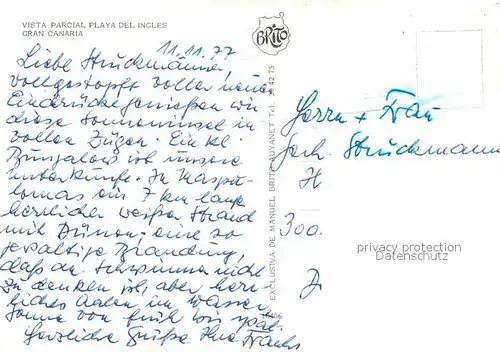 VISTA PARCIAL PLAYA DEL INGLES
GRAN CANARIA
BRITO
11.11.77
Liebe Struckmänner,
vollgestopft voller neuer
Eindrücke genießen wir
diese Sonneninsel in
vollen Zügen. Ein kl.
Bungalow ist unsere
Unterkunft. In Maspa-
lomas ein 7 km lang
herrlicher weißer Strand
mit Dünen, eine so
gewaltige Brandung,
daß an Schwimmen nicht
zu denken ist, aber herr-
liches Aalen im Wasser
Sonne von früh bis spät.
Herzliche Grüße Ihre
EXCLUSIVA DE MANUEL BRITO AUYANET Tel. 26 42 75
Herrn + Frau
Struckmann
H
300.
privacy protection
Datenschutz